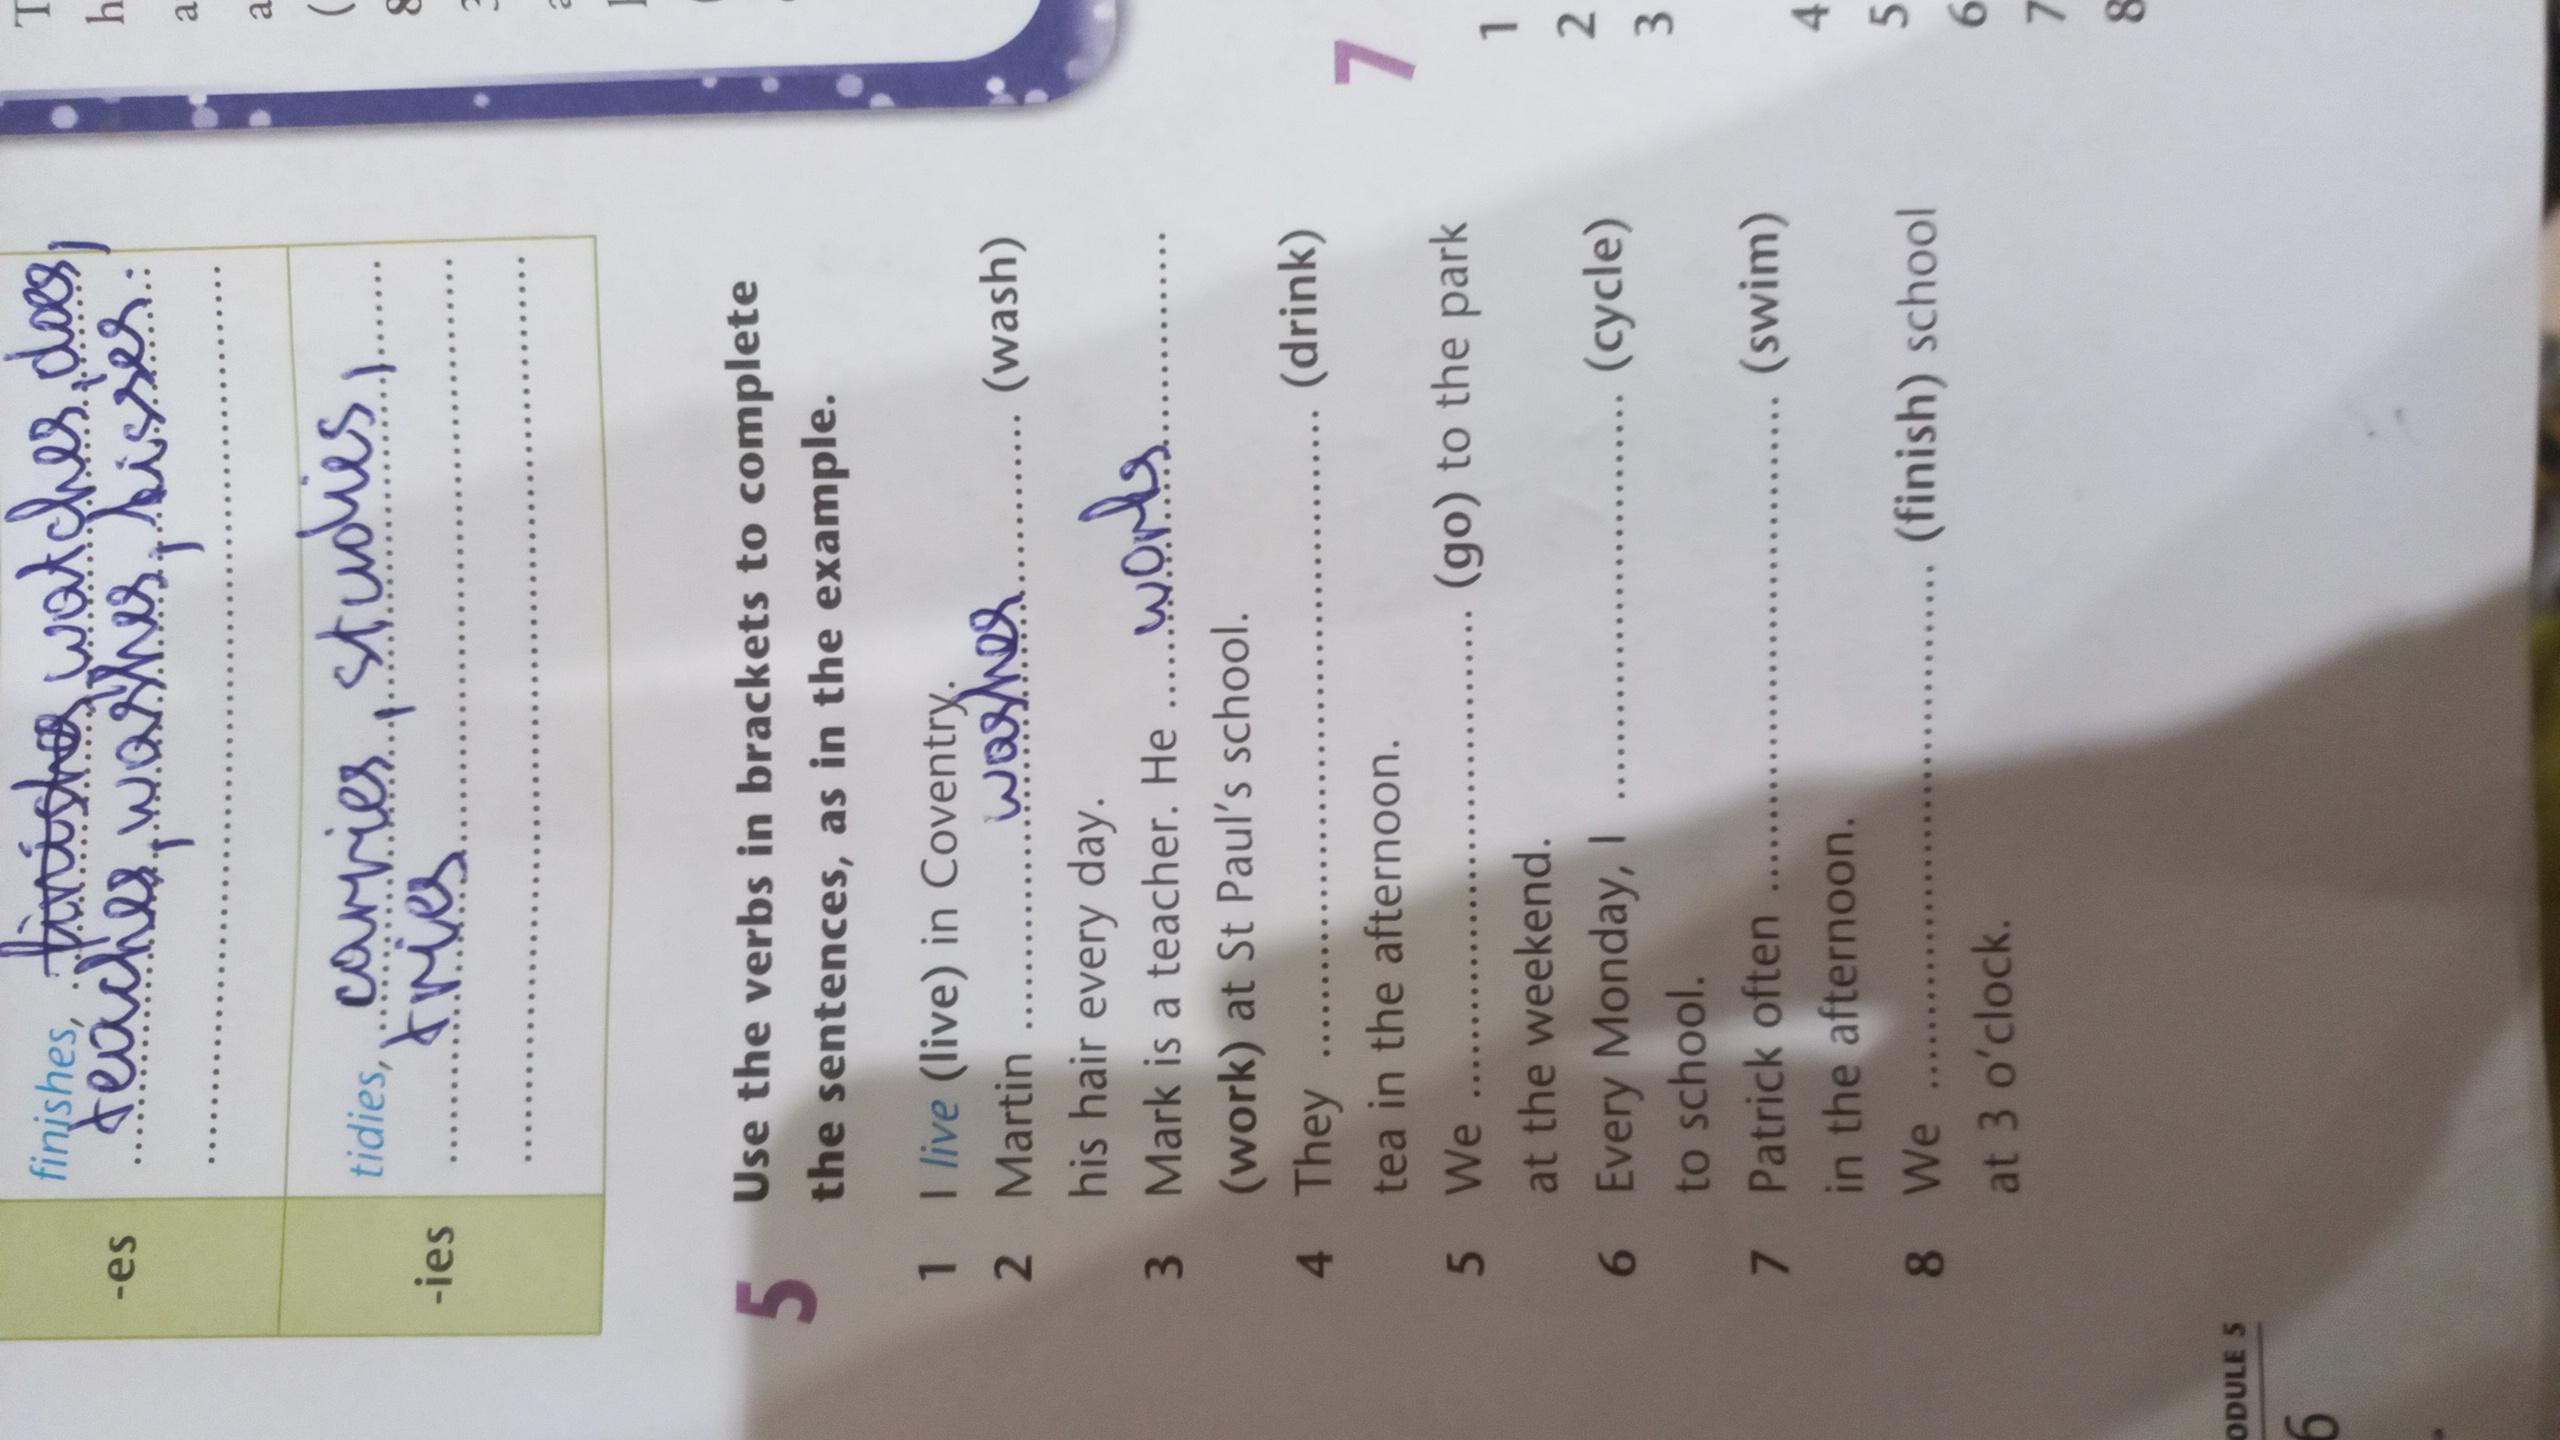 finishes, watches, does,
teaches, washes, kisses.
-es
tidies, carries, studies,
tries
-ies
5 Use the verbs in brackets to complete
the sentences, as in the example.
1 I live (live) in Coventry.
2 Martin washes (wash)
his hair every day.
3 Mark is a teacher. He works
(work) at St Paul's school.
4 They (drink)
tea in the afternoon.
5 We (go) to the park
at the weekend.
6 Every Monday, I (cycle)
to school.
7 Patrick often (swim)
in the afternoon.
8 We (finish) school
at 3 o'clock.
7
1
2
3
4
5
6
7
8